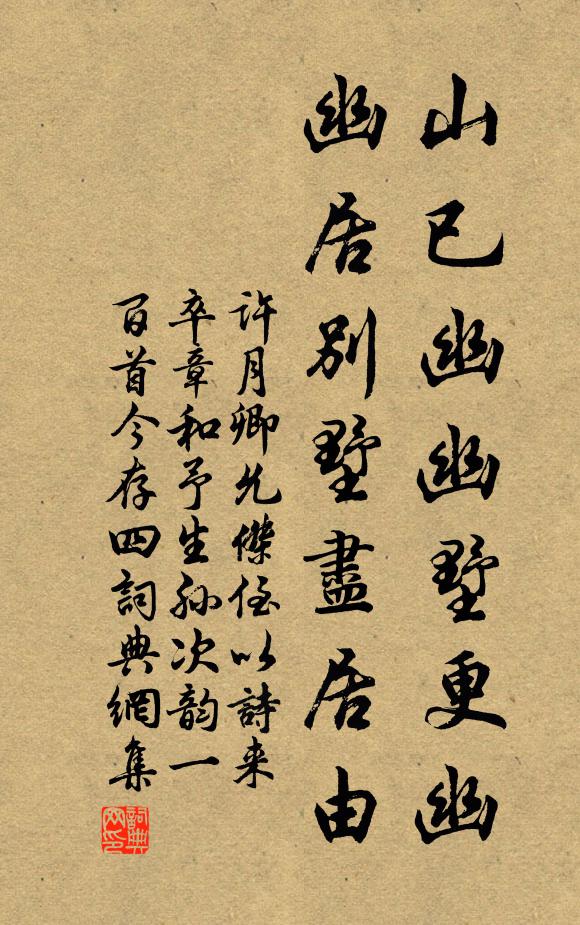 山已幽幽墅更幽
幽居別墅盡居由
許月卿允傑侄以詩来
卒章和予生孙次韵一
百首今存四詞典網集
詞典
网印